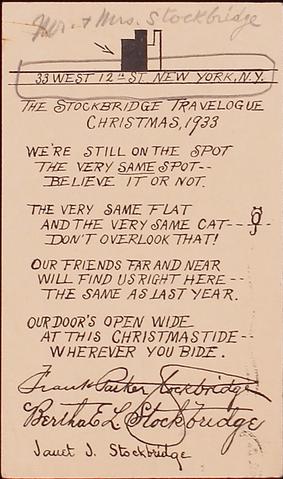 Mr. + Mrs. Stockbridge
33 WEST 12TH ST. NEW YORK, N.Y.
THE STOCKBRIDGE TRAVELOGUE
CHRISTMAS, 1933
WE'RE STILL ON THE SPOT
THE VERY SAME SPOT--
BELIEVE IT OR NOT.
THE VERY SAME FLAT
AND THE VERY SAME CAT---
DON'T OVERLOOK THAT!
OUR FRIENDS FAR AND NEAR
WILL FIND US RIGHT HERE--
THE SAME AS LAST YEAR.
OUR DOOR'S OPEN WIDE
AT THIS CHRISTMASTIDE--
WHEREVER YOU BIDE.
Frank Parker Stockbridge
Bertha E L Stockbridge
Janet J. Stockbridge